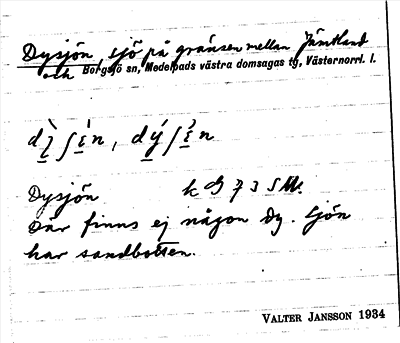 Dysjön, sjö på gränsen mellan Jämtland
och Borgsjö sn, Medelpads västra domsagas tg, Västernorrl. l.
Dysjön
Där finns ej någon dy. Sjön
har sandbotten.
VALTER JANSSON 1934